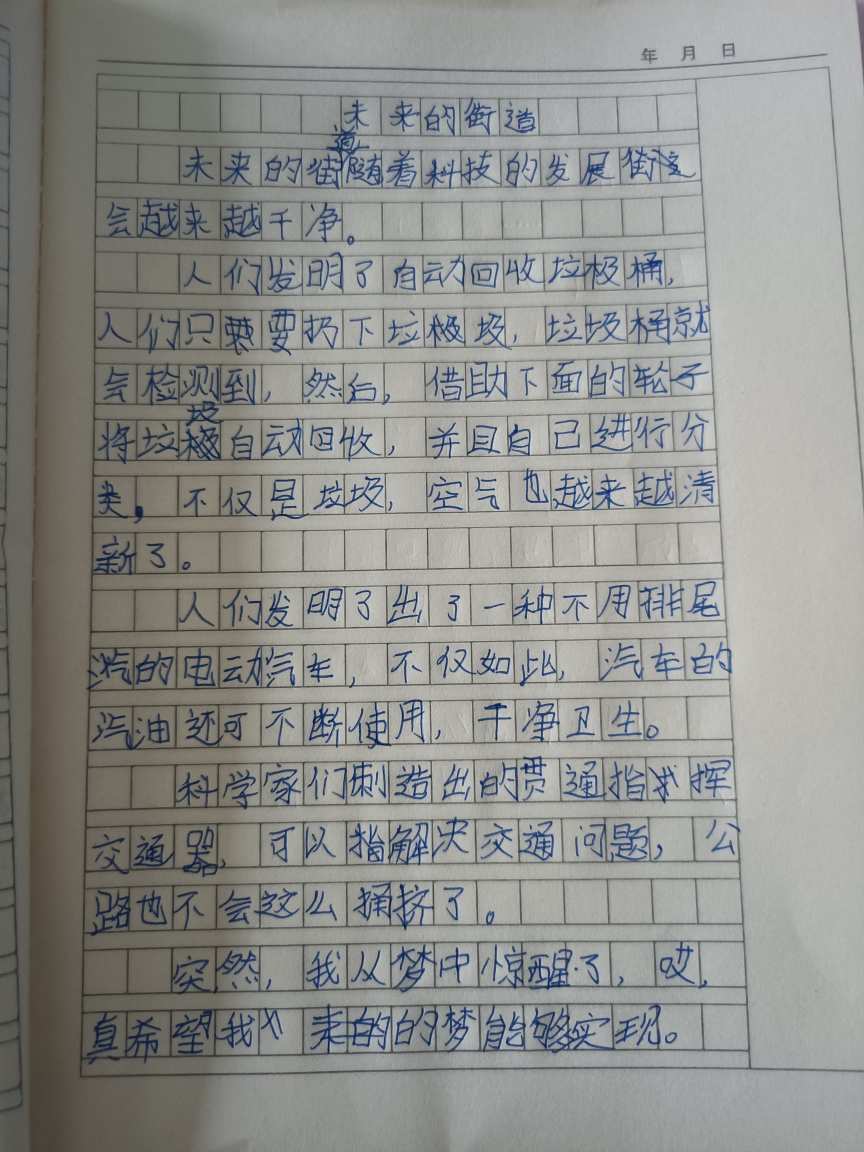 年 月 日
未来的街道
未来的街道随着科技的发展街道
会越来越干净。
人们发明了自动回收垃极桶,
人们只要要扔下垃极圾,垃圾桶就
会检测到,然后,借助下面的轮子
将垃圾自动回收,并且自己进行分
类,不仅是垃圾,空气也越来越清
新了。
人们发明了出了一种不用排尾
汽的电动汽车,不仅如此,汽车的
汽油还可不断使用,干净卫生。
科学家们制造出的贯通指挥
交通器,可以指解决交通问题,公
路也不会这么拥挤了。
突然,我从梦中惊醒了,哎,
真希望我 来的的梦能够实现。